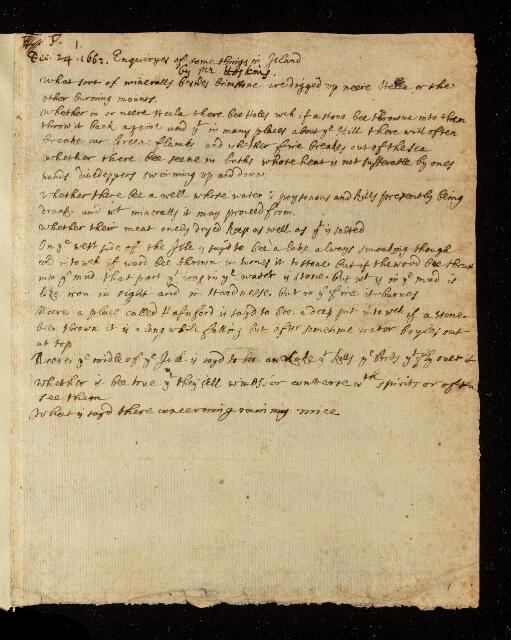 1.
Dec. 24. 1662. Enquiryes of some things in Island
by Mr Hoskins.
What sort of mineralls besides brimstone are digged up neere Hecla or the
other burning mounts.
Whether in or neere Hecla there bee holes wch if a stone bee throwne into them
throw it back againe and yt in many places about ye Hill there will often
breake out Greene flames and whether fire breakes out of the sea
Whether there bee seene in baths whose heat is not sufferable by ones
hands divedoppers swimming up and down
Whether there bee a well whose water is poysonous and kills presently being
drank and wt mineralls it may proceed from.
Whether their meat onely dryed keep as well as yt is salted
On ye west side of the Isle is sayd to bee a lake always smoaking though
cold into wch if wood bee thrown it turnes it to stone but if the wood bee thrust
into ye mud that part yt was in ye water is stone. but wt is in ye mud is
like iron in sight and in hardnesse. but in ye fire it burnes
Neere a place called Hafnford is sayd to bee a deep pit into wch if a stone
been thrown it is a long while falling but after sometime water boyles out
at top
Neere ye middle of ye Isle is sayd to bee a Lake yt kills ye birds yt fly over it
Whether it bee true yt they sell winds. or converse wth spirits or often
see them
What is sayd there concerning raining mice